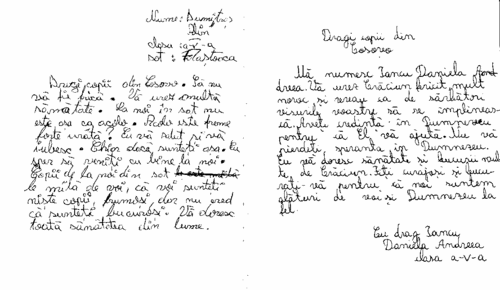 Nume: Dumitru
Alin
clasa: a-v-a
sat:
Dragi copii din Cosovo. Să nu
vă fie frică. Vă urez multă
sănătate. La noi în sat nu
este așa ca acolo. Acolo este vreme
forte urâtă? Eu vă salut și vă
iubesc. Chiar dacă sunteți așa. Eu
sper să veniți cu bine la noi.
Copii de la noi din sat
le mila de voi, că voi sunteți
niște copii, frumoși dar nu cred
că sunteți bucuroși. Vă doresc
toată sănătatea din lume.
Dragi copii din
Cosovo
Mă numesc Iancu Daniela
dreea. Vă urez Crăciun fericit mult
noroc și vreau ca de sărbători
visurile voastre să se împlineas-
că. Aveți credință în Dumnezeu
pentru că El vă ajută. Nu vă
pierdeți speranța în Dumnezeu.
Eu vă doresc sănătate și bucurii mul
te, de Crăciun. Fiți curajoși și bucu-
rați-vă pentru că noi suntem
alături de voi și Dumnezeu la
fel.
Cu drag Iancu
Daniela Andreea
clasa a-v-a